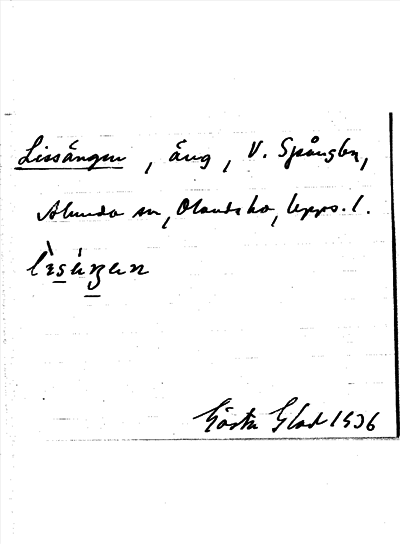 Lissängen, äng, V. Spångba,
Alunda sn, Olands hd, Upps. l.
lìsáŋan
Gösta Glad 1936